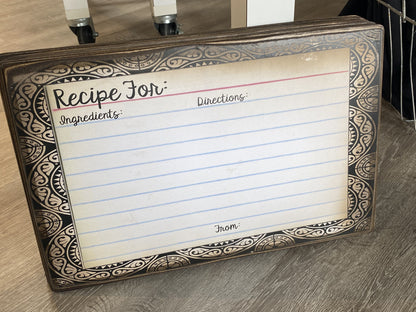 Recipe For:
Ingredients: Directions:
From: